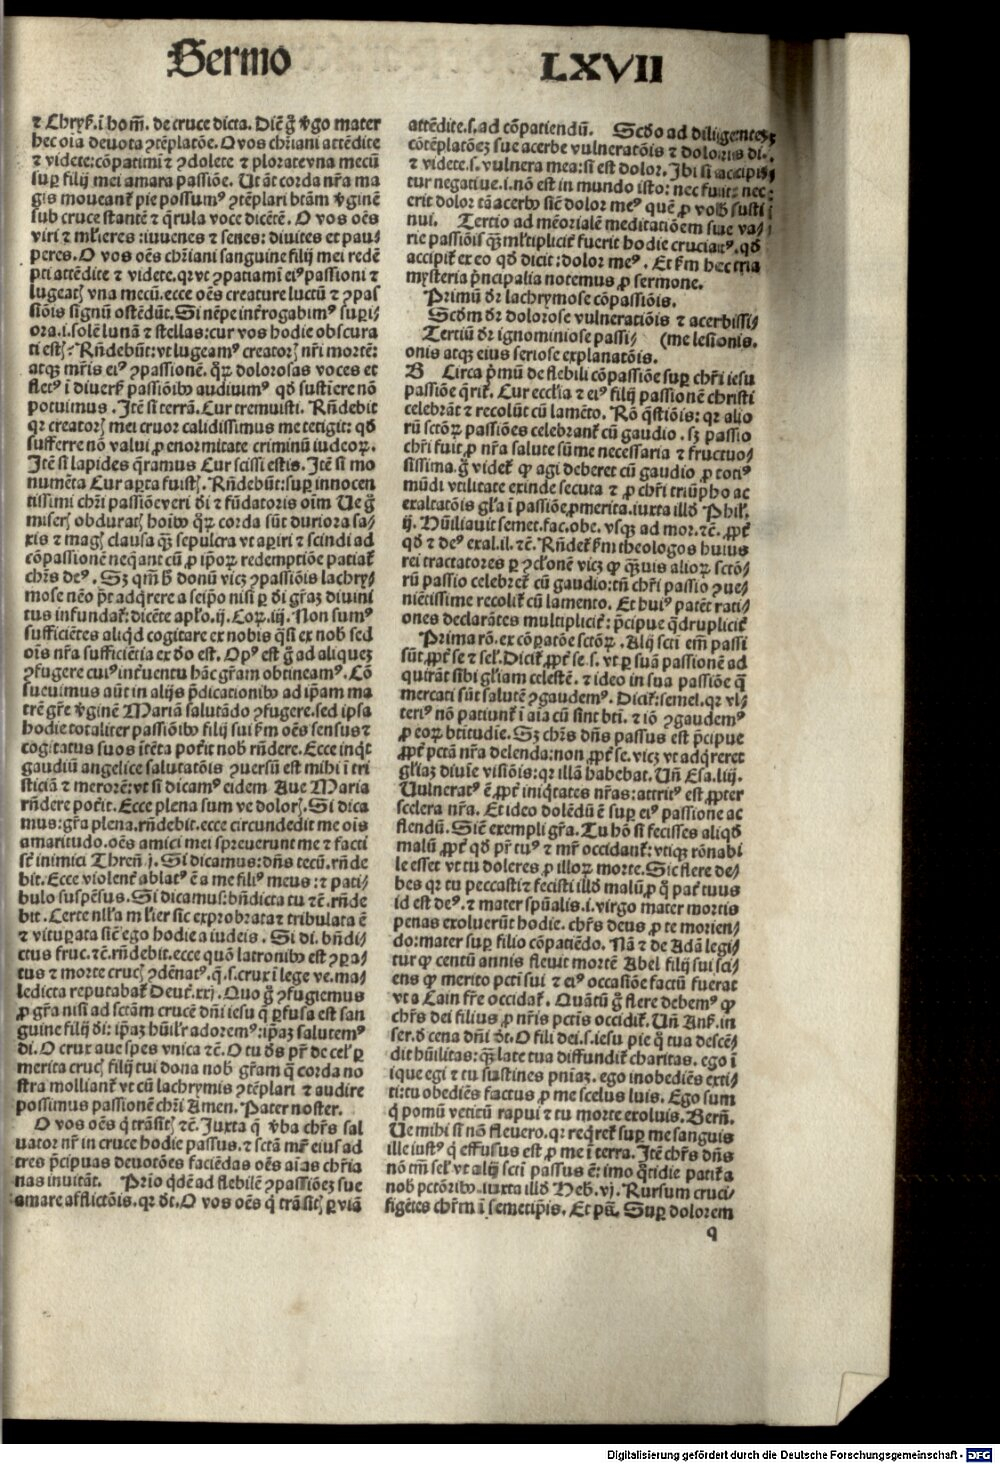 Sermo LXVII
⁊ Chryſ. ī hom̄. de cruce dicta. Diēt g̊ v̄go mater
hec oīa deuota ↄtēplatōe. O vos chr̄iani attēdite
⁊ videte: cōpatimī ⁊ ↄdolete ⁊ plorate vna mecū
suꝑ filij mei amara passiōe. Ut āt corda nr̄a ma
gis moueant̄ pie possumꝰ ↄtēplari btām v̄ginē
sub cruce stantē ⁊ q̄rula voce dicētē. O vos oēs
viri ⁊ ml̄ieres: iuuenes ⁊ senes: diuites et pau⸗
peres. O vos oēs chr̄iani sanguine filij mei redē
pti attēdite ⁊ videte. qr vt ↄpatiamī eiꝰ passioni ⁊
lugeatꝭ vna mecū. ecce oēs creature luctū ⁊ ↄpas
siōis signū ostēdūt. Si nēpe int̄rogabimꝰ suꝑi⸗
ora. i. solē lunā ⁊ stellas: cur vos hodie obscura
ti estꝭ: Rn̄debūt: vt lugeamꝰ creatorꝭ nr̄i mortē:
atqꝫ mr̄is eiꝰ ↄpassionē. qꝝ dolorosas voces et
fletꝰ ī diuersꝭ passiōibꝰ audiuimꝰ qd̄ sustīere nō
potuimus. Itē si terrā. Cur tremuisti. Rn̄debit
qr creatorꝭ mei cruor calidissimus me tetigit: qd̄
sufferre nō valui ꝓ enormitate criminū iudeoꝝ.
Itē si lapides q̄ramus Cur scissi estis. Itē si mo
numēta Cur aꝑta fuistꝭ. Rn̄debūt: suꝑ innocen
tissimi chr̄i passiōe veri d̄i ⁊ fūdatoris oīm Ue g̊
miserꝭ obduratꝭ hoībꝰ qꝝ corda sūt duriora sa⸗
xis ⁊ magꝭ clausa qꝫ sepulcra vt aꝑiri ⁊ scindi ad
cōpassionē neq̄ant cū ꝓ ip̄oꝝ redemptiōe patiat̄
chr̄s deꝰ. Sꝫ qm̄ h̄ donū vicꝫ ↄpassiōis lachry⸗
mose nēo p̄t adq̄rere a seip̄o nisi ꝑ d̄i gr̄aꝫ diuini
tus infundat̄: dicēte apl̄o. ij. Coꝝ. iij. Non sumꝰ
sufficiētes aliqd cogitare ex nobis q̄si ex nob̄ sed
oīs nr̄a sufficiētia ex d̄o est. Opꝰ est g̊ ad aliqueꝫ
ↄfugere cuiꝰ int̄uentu hāc gr̄am obtineamꝰ. Cō
sueuimus aūt in alijs p̄dicationibꝰ ad ip̄am ma
trē gr̄e v̄ginē Mariā salutādo ↄfugere. sed ipsa
hodie totaliter passiōibꝰ filij sui ſm oēs sensus ⁊
cogitatus suos ītēta pot̄it nob̄ rn̄dere. Ecce inqt
gaudiū angelice salutatōis ↄuersū est mihi ī tri
sticiā ⁊ merorē: vt si dicamꝰ eidem Aue Maria
rn̄dere pot̄it. Ecce plena sum ve dolorꝭ. Si dica
mus: gr̄a plena. rn̄debit. ecce circundedit me oīs
amaritudo. oēs amici mei spreuerunt me ⁊ facti
st̄ inimici Thren̄ j. Si dicamus: dn̄s tecū. rn̄de
bit. Ecce violent̄ ablatꝰ ē a me filiꝰ meus: ⁊ pati⸗
bulo suspēsus. Si dicamus: bn̄dicta tu ⁊c̄. rn̄de
bit. Certe nll̄a ml̄ier sic exprobrata ⁊ tribulata ē
⁊ vituꝑata sic̄ ego hodie a iudeis. Si di. bn̄di⸗
ctus fruc. ⁊c̄. rn̄debit. ecce quō latronibꝰ est ↄꝑa⸗
tus ⁊ morte crucꝭ ↄdēnatꝰ. q̄. s. crux ī lege ve. ma⸗
ledicta reputabat̄ Deut̄. xxj. Quo g̊ ↄfugiemus
ꝓ gr̄a nisi ad sctām crucē dn̄i iesu q̄ ꝑfusa est san
guine filij d̄i: ip̄aꝫ hūilr̄ adoremꝰ: ip̄aꝫ salutemꝰ
di. O crux aue spes vnica ⁊c̄. O tu d̄s pr̄ de cel̄ ꝑ
merita crucꝭ filij tui dona nob̄ gr̄am q̄ corda no
stra molliant̄ vt cū lachrymis ↄtēplari ⁊ audire
possimus passionē chr̄i Amen. Pater noster.
O vos oēs q̄ trāsitꝭ ⁊c̄. Juxta q̄ v̄ba chr̄s sal
uator nr̄ in cruce hodie passus. ⁊ sctā mr̄ eius ad
tres p̄cipuas deuotōes faciēdas oēs aīas chr̄ia
nas inuitāt. Prīo qdē ad flebilē ↄpassiōeꝫ sue
amare afflictōis. qr d̄t. O vos oēs q̄ trāsitꝭ ꝑ viā
attēdite. s. ad cōpatiendū. Scd̄o ad diligentē
cōtēplatōeꝫ sue acerbe vulneratōis ⁊ doloris di.
⁊ videte. s. vulnera mea: si est dolor. Ibi si accipi⸗
tur negatiue. i. nō est in mundo isto: nec fuit: nec
erit dolor tā acerbꝰ sic̄ dolor meꝰ quē ꝓ vob̄ susti
nui. Tertio ad mēorialē meditatiōem sue va⸗
rie passiōis qꝫ ml̄tiplicit̄ fuerit hodie cruciatꝰ. qd̄
accipit̄ ex eo qd̄ dicit: dolor meꝰ. Et ſm hec tria
mysteria p̄ncipalia notemus ꝓ sermone.
Primū dr̄ lachrymose cōpassiōis.
Scd̄m dr̄ dolorose vulneratiōis ⁊ acerbissi⸗
Tertiū dr̄ ignominiose passi⸗ (me lesionis.
onis atqꝫ eius seriose explanatōis.
B Circa p̄mū de flebili cōpassiōe suꝑ chr̄i iesu
passiōe q̄rit̄. Cur eccl̄ia ⁊ eiꝰ filij passionē christi
celebrāt ⁊ recolūt cū lamēto. Rō q̄stiōis: qr alio
rū sctōꝝ passiōes celebrant̄ cū gaudio. sꝫ passio
chr̄i fuit ꝓ nr̄a salute sūme necessaria ⁊ fructuo⸗
sissima. g̊ videt̄ ꝙ agi deberet cū gaudio ꝓ totiꝰ
mūdi vtilitate exinde secuta ⁊ ꝓ chr̄i triūpho ac
exaltatōis gl̄a ī passiōe ꝓmerita. iuxta illd̄ Phil̄.
ij. Hūiliauit semet. fac. obe. vsqꝫ ad mor. ⁊c̄. ꝓpt̄
qd̄ ⁊ deꝰ exal. il. ⁊c̄. Rn̄det̄ ſm theologos huius
rei tractatores ꝑ ↄclonē vicꝫ ꝙ qꝫuis alioꝝ sctō⸗
rū passio celebret̄ cū gaudio: tn̄ chr̄i passio ↄue⸗
niētissime recolit̄ cū lamento. Et huiꝰ patēt rati⸗
ones declarātes multiplicit̄: p̄cipue q̄druplicit̄
Prima rō. ex cōꝑatōe sctōꝝ. Alij scti em̄ passi
sūt ꝓpt̄ se ⁊ sel̄. Dicit̄ ꝓpt̄ se. s. vt ꝑ suā passionē ad
quirāt sibi gl̄iam celestē. ⁊ ideo in sua passiōe q̄
mercati sūt salutē ↄgaudemꝰ. Dicit̄: semel. qr vl⸗
teriꝰ nō patiunt̄ ī aīa cū sint bt̄i. ⁊ iō ↄgaudemꝰ
ꝓ eoꝝ bt̄itudīe. Sꝫ chr̄s dn̄s passus est p̄cipue
ꝓpt̄ pctā nr̄a delenda: non ꝓpt̄ se. vicꝫ vt adq̄reret
gl̄iaꝫ diuīe visiōis: qr illā habebat. Un̄ Esa. liij.
Uulneratꝰ ē ꝓpt̄ iniq̄tates nr̄as: attritꝰ est ꝓpter
scelera nr̄a. Et ideo dolēdū ē suꝑ eiꝰ passione ac
flendū. Sic̄ exempli gr̄a. Tu hō si fecisses aliqd̄
malū ꝓpt̄ qd̄ pr̄ tuꝰ ⁊ mr̄ occidant̄: vtiqꝫ rōnabi
le esset vt tu doleres ꝓ illoꝝ morte. Sic flere de⸗
bes qr tu peccasti ⁊ fecisti illd̄ malū ꝓ q̄ pat̄ tuus
id est deꝰ. ⁊ mater spūalis. i. virgo mater mortis
penas exoluerūt hodie. chr̄s deus ꝓ te morien⸗
do: mater suꝑ filio cōpatiēdo. Nā ⁊ de Adā legi⸗
tur ꝙ centū annis fleuit mortē Abel filij sui sci⸗
ens ꝙ merito pcti sui ⁊ eiꝰ occasiōe factū fuerat
vt a Cain fr̄e occidat̄. Quātū g̊ flere debemꝰ ꝙ
chr̄s dei filius ꝓ nr̄is pctīs occidit̄. Un̄ Anſ. in
ser. d̄ cena dn̄i d̄t. O fili dei. s. iesu pie q̄ tua descē⸗
dit hūilitas: qꝫ late tua diffundit̄ charitas. ego ī
ique egi ⁊ tu sustines pniaꝫ. ego inobediēs exti⸗
ti: tu obediēs factus ꝓ me scelus luis. Ego sum
q̄ pomū vetitū rapui ⁊ tu morte exoluis. Bern̄.
Ue mihi si nō fleuero. qr req̄ret̄ suꝑ me sanguis
ille iustꝰ q̄ effusus est ꝓ me ī terra. Itē chr̄s dn̄s
nō tm̄ sel̄ vt alij scti passus ē: imo q̄tidie patit̄ a
nob̄ pctōribꝰ. iuxta illd̄ Heb. vj. Rursum cruci⸗
figētes chr̄m ī semetip̄is. Et ps̄. Suꝑ dolorem
q
Digitalisierung gefördert durch die Deutsche Forschungsgemeinschaft - DFG